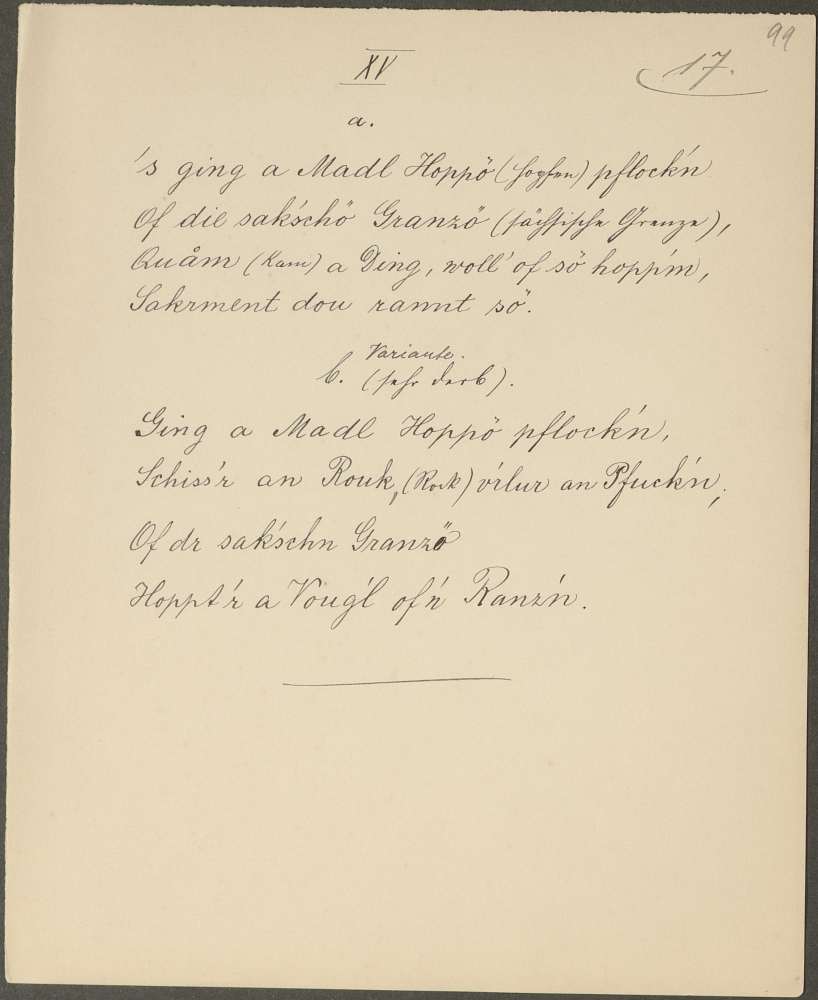 99
XV
17.
a.
's ging a Madl Hoppö (Hopfen) pflock'n
Of die sak'schö Granzö (sächsische Grenze),
Quåm (Kam) a Ding, woll' of sö hopp'm,
Sakrment dou rannt sö.
Variante.
b. (sehr derb).
Ging a Madl Hoppö pflock'n,
Schiss'r an Rouk, (Rock) v'rlur an Pfuck'n;
Of dr sak'schn Granzö
Hoppt'r a Voug'l of'n Ranz'n.